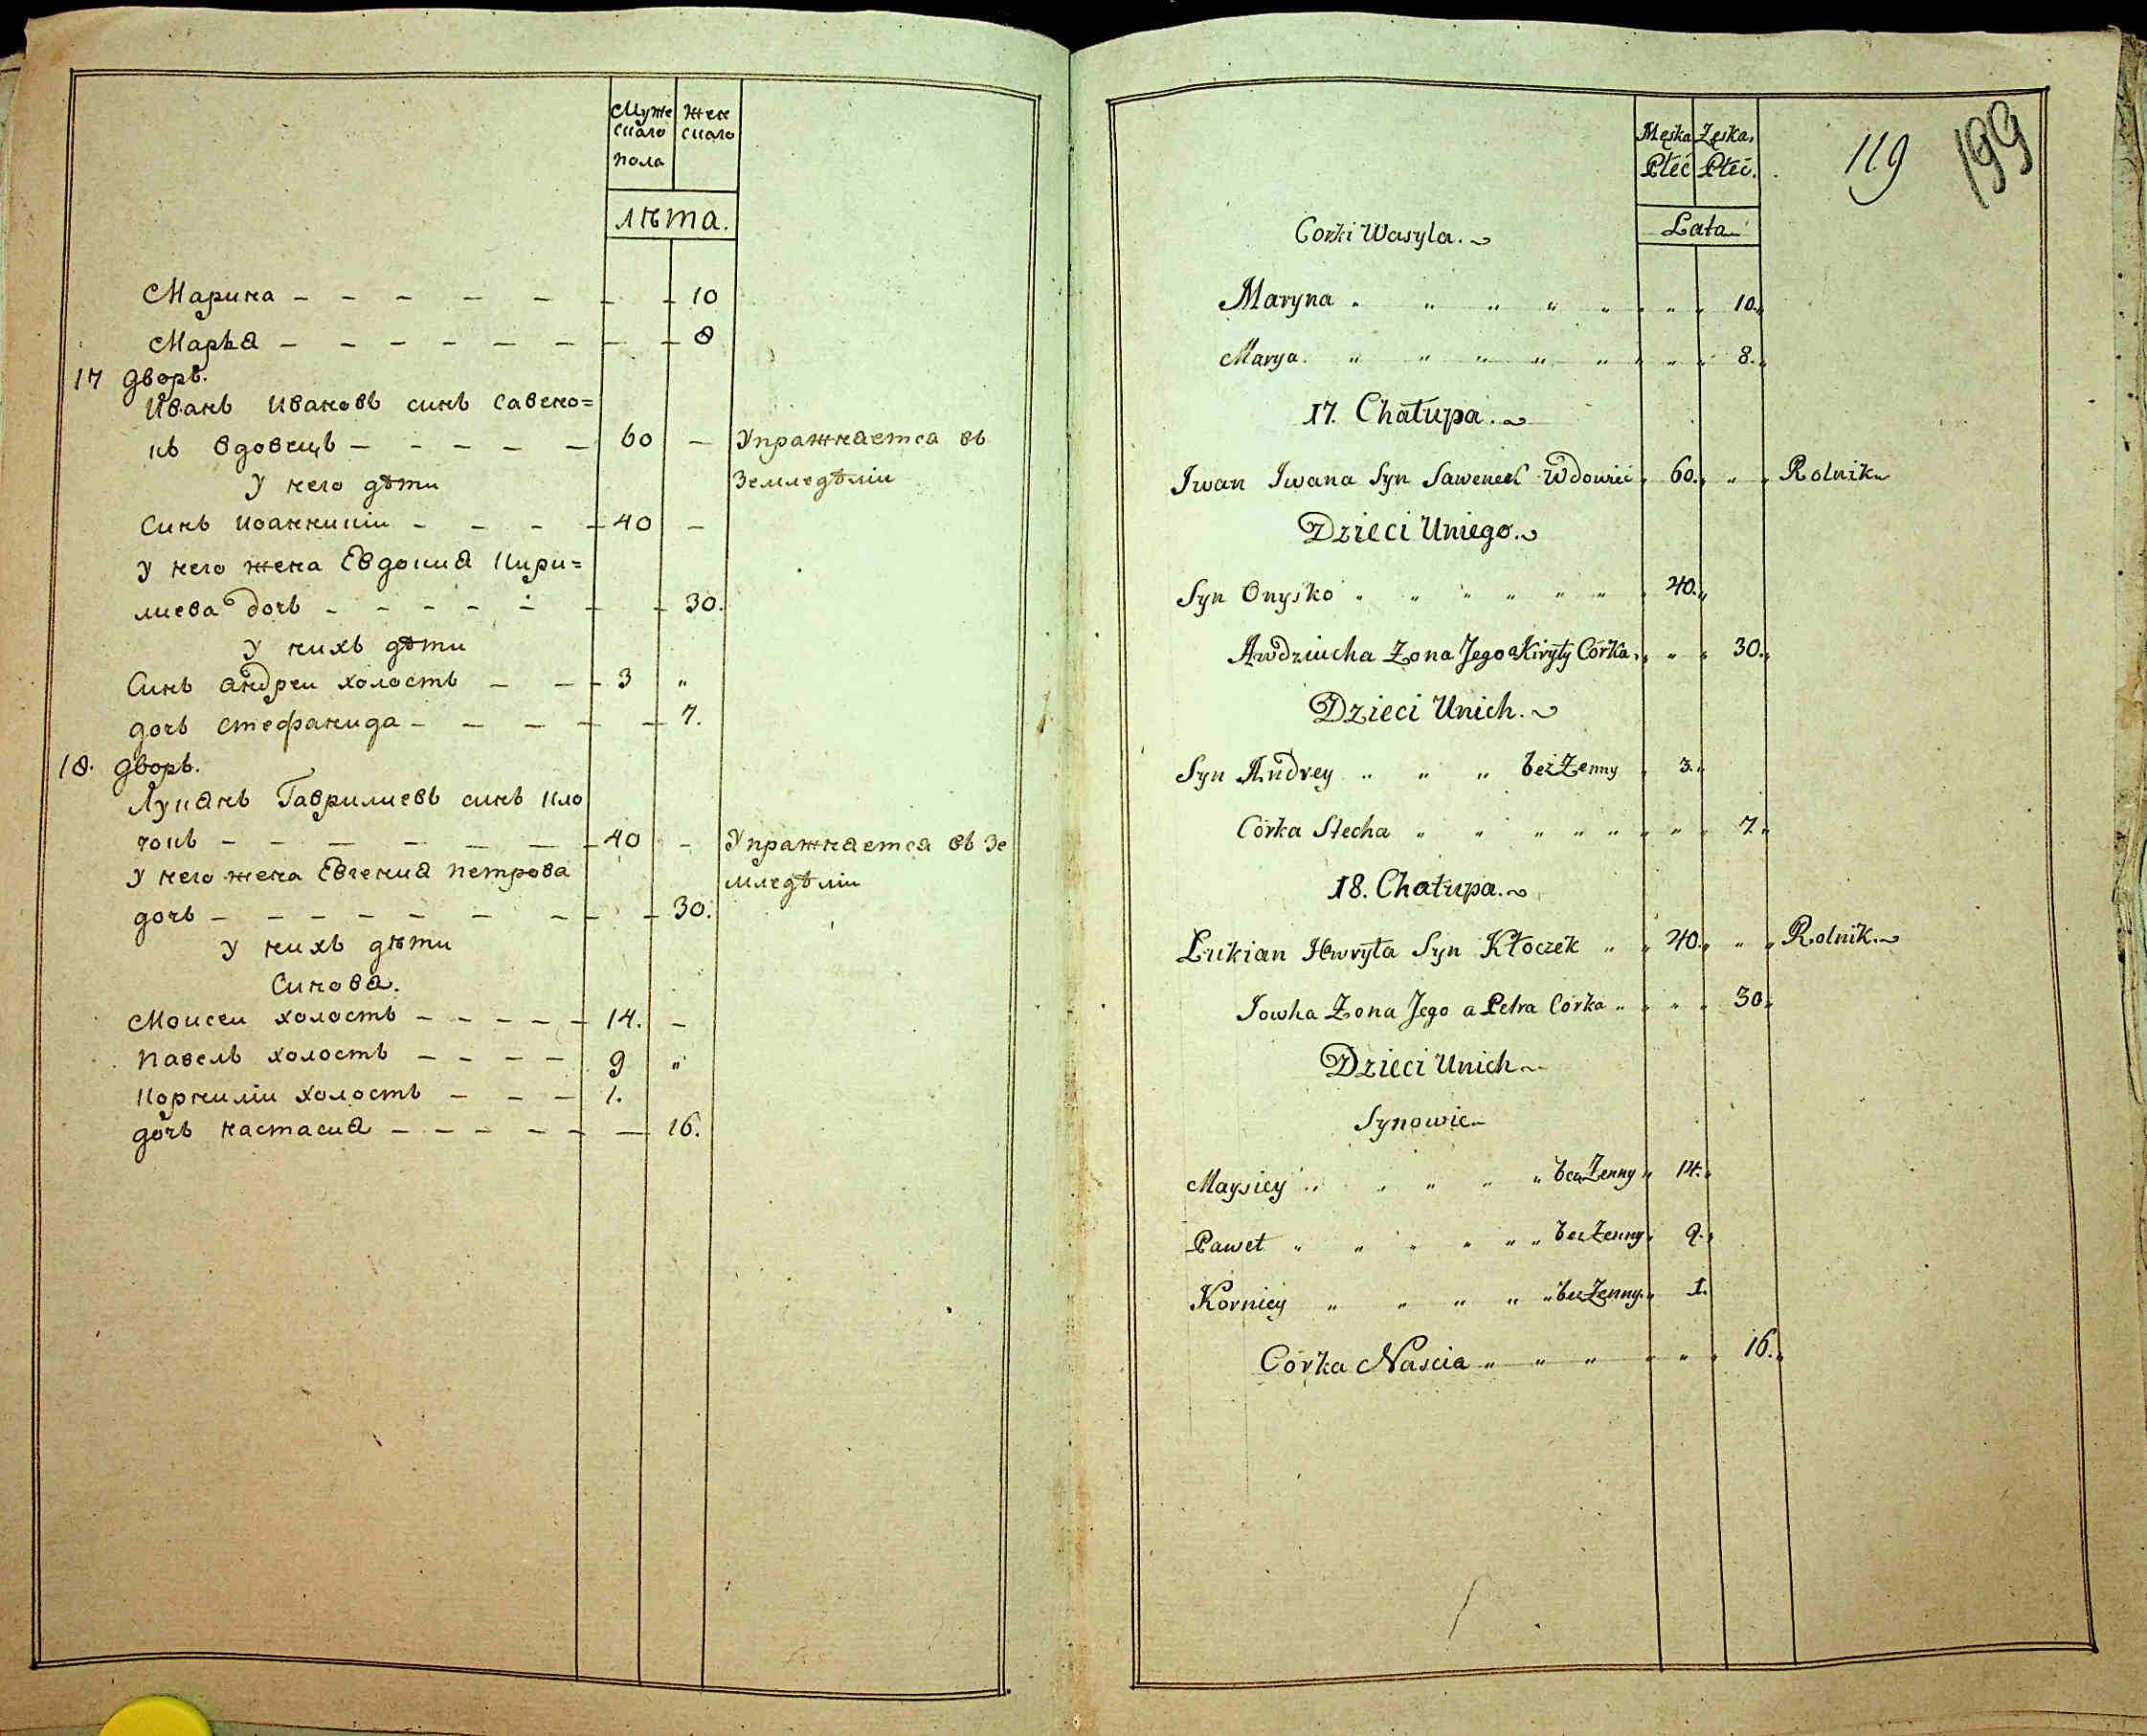 Муже Жен
скаго скаго
пола
лѣта.
Марина – – – – – – – 10
Марья – – – – – – – 8
17 дворъ.
Иванъ Ивановъ синъ Савено=
къ вдовецъ – – – – – 60 – Упражняется въ
у него дѣти земледѣліи
Синъ Иоанникіи – – – – 40 –
у него жена Евдокия Кири=
лиева дочь – – – – – – – 30.
у нихъ дѣти
Синъ андреи холостъ – – – 3 "
дочь стефанида – – – – – 7.
18. дворъ.
Лукянъ Гаврилиевъ синъ Кло
чокъ – – – – – – – 40 – Упражняется въ Зе
у него жена Евгения петрова мледѣліи
дочь – – – – – – – – – 30.
у нихъ дѣти
Синова.
Моисеи холостъ – – – – – 14. –
павелъ холостъ – – – – 9 "
Корнилiи холостъ – – – 1.
дочь настасия – – – – – – 16.
Męska Żęska
Płeć Płeć. 119 199
Corki Wasyla. Lata
Maryna " " " " " " " " 10.
Marya. " " " " " " " " 8.
17. Chałupa.
Iwan Iwana Syn Sawenek Wdowiec " 60. " " Rolnik
Dzieci Uniego.
Syn Onysko " " " " " " " 40.
Awdziucha Zona Jego a Kiryły Córka " " " 30.
Dzieci Unich.
Syn Andrey " " " bezZenny " 3.
Córka Stecha " " " " " " " " 7.
18. Chałupa.
Łukian Hawryła Syn Kłoczek " " 40. " " Rolnik.
Jowha Zona Jego a Petra Córka " " " " 30.
Dzieci Unich
Synowie
Maysiey " " " " " bezZenny " 14.
Paweł " " " " " " bezZenny " 9.
Korniey " " " " " bezZenny. " 1.
Córka Nascia " " " " " " 16.